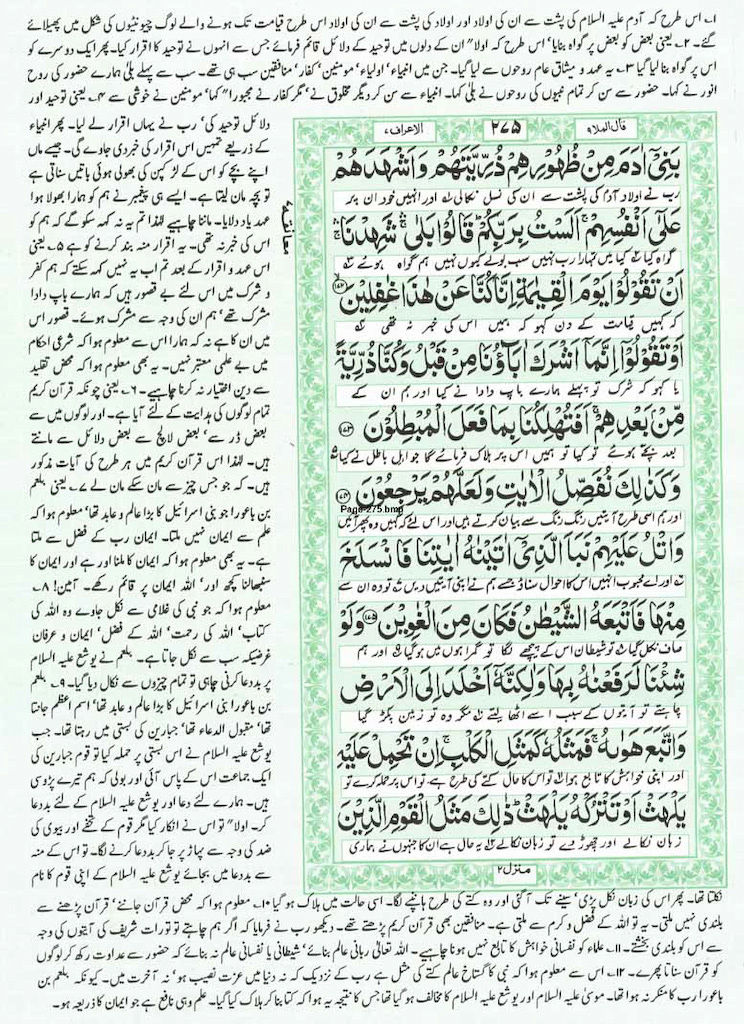 ۱۔ اس طرح کہ آدم علیہ السلام کی پشت سے ان کی اولاد اور اولاد کی پشت سے ان کی اولاد اس طرح قیامت تک ہونے والے لوگ چیونٹیوں کی شکل میں پھیلائے
گئے۔ ۲۔ یعنی بعض کو بعض پر گواہ بنایا' اس طرح کہ اولاً" ان کے دلوں میں توحید کے دلائل قائم فرمائے جس سے انہوں نے توحید کا اقرار کیا۔ پھر ایک دوسرے کو
اس پر گواہ بنا لیا گیا ۳۔ یہ عہد و میثاق عام روحوں سے لیا گیا۔ جن میں انبیاء' اولیاء' مومنین' کفار' منافقین سب ہی تھے۔ سب سے پہلے بلیٰ ہمارے حضور کی روح
انور نے کہا۔ حضور سے سن کر تمام نبیوں کی روحوں نے بلیٰ کہا۔ انبیاء سے سن کر دیگر مخلوق نے' مگر کفار نے مجبوراً" کہا' مومنین نے خوشی سے ۴۔ یعنی توحید اور
دلائل توحید کی' رب نے یہاں اقرار لے لیا۔ پھر انبیاء
کے ذریعے تمہیں اس اقرار کی خبر دی جاوے گی۔ جیسے ماں
اپنے بچے کو اس کے لڑکپن کی بھولی ہوئی باتیں سناتی ہے
تو بچہ مان لیتا ہے۔ ایسے ہی پیغمبر نے ہم کو ہمارا بھولا ہوا
عہد یاد دلایا۔ ماننا چاہیے لہٰذا تم یہ نہ کہہ سکو گے کہ ہم کو
اس کی خبر نہ تھی۔ یہ اقرار منہ بند کرنے کو ہے ۵۔ یعنی
اس عہد و اقرار کے بعد تم اب یہ نہیں کہہ سکتے کہ ہم کفر
و شرک میں اس لئے بے قصور ہیں کہ ہمارے باپ دادا
مشرک تھے' ہم ان کی وجہ سے مشرک ہوئے۔ قصور اس
میں ان کا ہے نہ کہ ہمارا اس سے معلوم ہوا کہ شرعی احکام
میں بے علمی معتبر نہیں۔ یہ بھی معلوم ہوا کہ محض تقلید
سے دین اختیار نہ کرنا چاہیے۔ ۶۔ یعنی چونکہ قرآن کریم
تمام لوگوں کی ہدایت کے لئے آیا ہے۔ اور لوگوں میں سے
بعض ڈر سے' بعض لالچ سے بعض دلائل سے مانتے
ہیں۔ لہٰذا اس قرآن کریم میں ہر طرح کی آیات مذکور
ہیں۔ کہ جو جس چیز سے مان سکے مان لے ۷۔ یعنی بلعم
بن باعورا جو بنی اسرائیل کا بڑا عالم و عابد تھا' معلوم ہوا کہ
علم سے ایمان نہیں ملتا۔ ایمان رب کے فضل سے ملتا
ہے۔ یہ بھی معلوم ہوا کہ ایمان کا ملنا اور ہے اور ایمان کا
سنبھالنا کچھ اور' اللہ ایمان پر قائم رکھے۔ آمین! ۸۔
معلوم ہوا کہ جو نبی کی غلامی سے نکل جاوے وہ اللہ کی
کتاب' اللہ کی رحمت' اللہ کے فضل' ایمان و عرفان
غرضیکہ سب سے نکل جاتا ہے۔ بلعم نے یوشع علیہ السلام
پر بددعا کرنی چاہی تو تمام چیزوں سے نکال دیا گیا۔ ۹۔ بلعم
بن باعورا بنی اسرائیل کا بڑا عالم و عابد تھا' اسم اعظم جانتا
تھا' مقبول الدعاء تھا' جبارین کی بستی میں رہتا تھا۔ جب
یوشع علیہ السلام نے اس بستی پر حملہ کیا تو قوم جبارین کی
ایک جماعت اس کے پاس آئی اور بولی کہ ہم تیرے پڑوسی
ہیں۔ ہمارے لئے دعا اور یوشع علیہ السلام کے لئے بددعا
کر۔ اولاً" تو اس نے انکار کیا مگر قوم کے تحفے اور بیوی کی
ضد کی وجہ سے پہاڑ پر جا کر بددعا کرنے لگا۔ تو اس کے منہ
سے بددعا میں بجائے یوشع علیہ السلام کے اپنی قوم کا نام
معانقة
قال الملا ۹
۲۷۵
الاعراف ۷
بَنِیْۤ اٰدَمَ مِنْ ظُهُوْرِهِمْ ذُرِّیَّتَهُمْ وَاَشْهَدَهُمْ
رب نے اولاد آدم کی پشت سے ان کی نسل نکالی اور انہیں خود ان پر
عَلٰۤی اَنْفُسِهِمْ ۚ اَلَسْتُ بِرَبِّكُمْ ؕ قَالُوْا بَلٰی ۛۚ شَهِدْنَا ۛۚ
گواہ کیا کیا میں تمہارا رب نہیں سب بولے کیوں نہیں ہم گواہ ہوئے
اَنْ تَقُوْلُوْا یَوْمَ الْقِیٰمَةِ اِنَّا كُنَّا عَنْ هٰذَا غٰفِلِیْنَ
کہ کہیں قیامت کے دن کہو کہ ہمیں اس کی خبر نہ تھی
اَوْ تَقُوْلُوْۤا اِنَّمَاۤ اَشْرَكَ اٰبَآؤُنَا مِنْ قَبْلُ وَكُنَّا ذُرِّیَّةً
یا کہو کہ شرک تو پہلے ہمارے باپ دادا نے کیا اور ہم ان کے
مِّنْۢ بَعْدِهِمْ ۚ اَفَتُهْلِكُنَا بِمَا فَعَلَ الْمُبْطِلُوْنَ
بعد بچے ہوئے تو کیا تو ہمیں اس پر ہلاک فرمائے گا جو اہل باطل نے کیا
وَكَذٰلِكَ نُفَصِّلُ الْاٰیٰتِ وَلَعَلَّهُمْ یَرْجِعُوْنَ
Page-275.bmp
اور ہم اسی طرح آیتیں رنگ رنگ سے بیان کرتے ہیں اور اس لئے کہ کہیں وہ پھر آئیں
وَاتْلُ عَلَیْهِمْ نَبَاَ الَّذِیْۤ اٰتَیْنٰهُ اٰیٰتِنَا فَانْسَلَخَ
اور اے محبوب انہیں اس کا احوال سناؤ جسے ہم نے اپنی آیتیں دیں تو وہ ان سے
مِنْهَا فَاَتْبَعَهُ الشَّیْطٰنُ فَكَانَ مِنَ الْغٰوِیْنَ ۝۱۷۵ وَلَوْ
صاف نکل گیا تو شیطان اس کے پیچھے لگا تو گمراہوں میں ہوگیا اور ہم
شِئْنَا لَرَفَعْنٰهُ بِهَا وَلٰكِنَّهٗۤ اَخْلَدَ اِلَی الْاَرْضِ
چاہتے تو آیتوں کے سبب اسے اٹھا لیتے مگر وہ تو زمین پکڑ گیا
وَاتَّبَعَ هَوٰىهُ ۚ فَمَثَلُهٗ كَمَثَلِ الْكَلْبِ ۚ اِنْ تَحْمِلْ عَلَیْهِ
اور اپنی خواہش کا تابع ہوا تو اس کا حال کتے کی طرح ہے تو اس پر حملہ کرے تو
یَلْهَثْ اَوْ تَتْرُكْهُ یَلْهَثْ ؕ ذٰلِكَ مَثَلُ الْقَوْمِ الَّذِیْنَ
زبان نکالے اور چھوڑ دے تو زبان نکالے یہ حال ہے ان کا جنہوں نے ہماری
منزل ۲
نکلتا تھا۔ پھر اس کی زبان نکل پڑی' سینے تک آ گئی اور وہ کتے کی طرح ہانپنے لگا۔ اسی حالت میں ہلاک ہو گیا ۱۰۔ معلوم ہوا کہ محض قرآن جاننے' قرآن پڑھنے سے
بلندی نہیں ملتی۔ یہ تو اللہ کے فضل و کرم سے ملتی ہے۔ منافقین بھی قرآن کریم پڑھتے تھے۔ دیکھو رب نے فرمایا کہ اگر ہم چاہتے تو تورات شریف کی آیتوں کی وجہ
سے اس کو بلندی بخشتے۔ ۱۱۔ علماء کو نفسانی خواہش کا تابع نہیں ہونا چاہیے۔ اللہ تعالیٰ ربانی عالم بنائے' شیطانی یا نفسانی عالم نہ بنائے کہ حضور سے عداوت رکھ کر لوگوں
کو قرآن سناتا پھرے۔ ۱۲۔ اس سے معلوم ہوا کہ نبی کا گستاخ عالم کتے کی مثل ہے رب کے نزدیک کہ نہ دنیا میں عزت نصیب ہو' نہ آخرت میں۔ کیونکہ بلعم بن
باعورا رب کا منکر نہ ہوا تھا۔ موسیٰ علیہ السلام اور یوشع علیہ السلام کا مخالف ہو گیا تھا جس کا نتیجہ یہ ہوا کہ کتا بنا کر ہلاک کیا گیا۔ علم وہی نافع ہے جو ایمان کا ذریعہ ہو۔